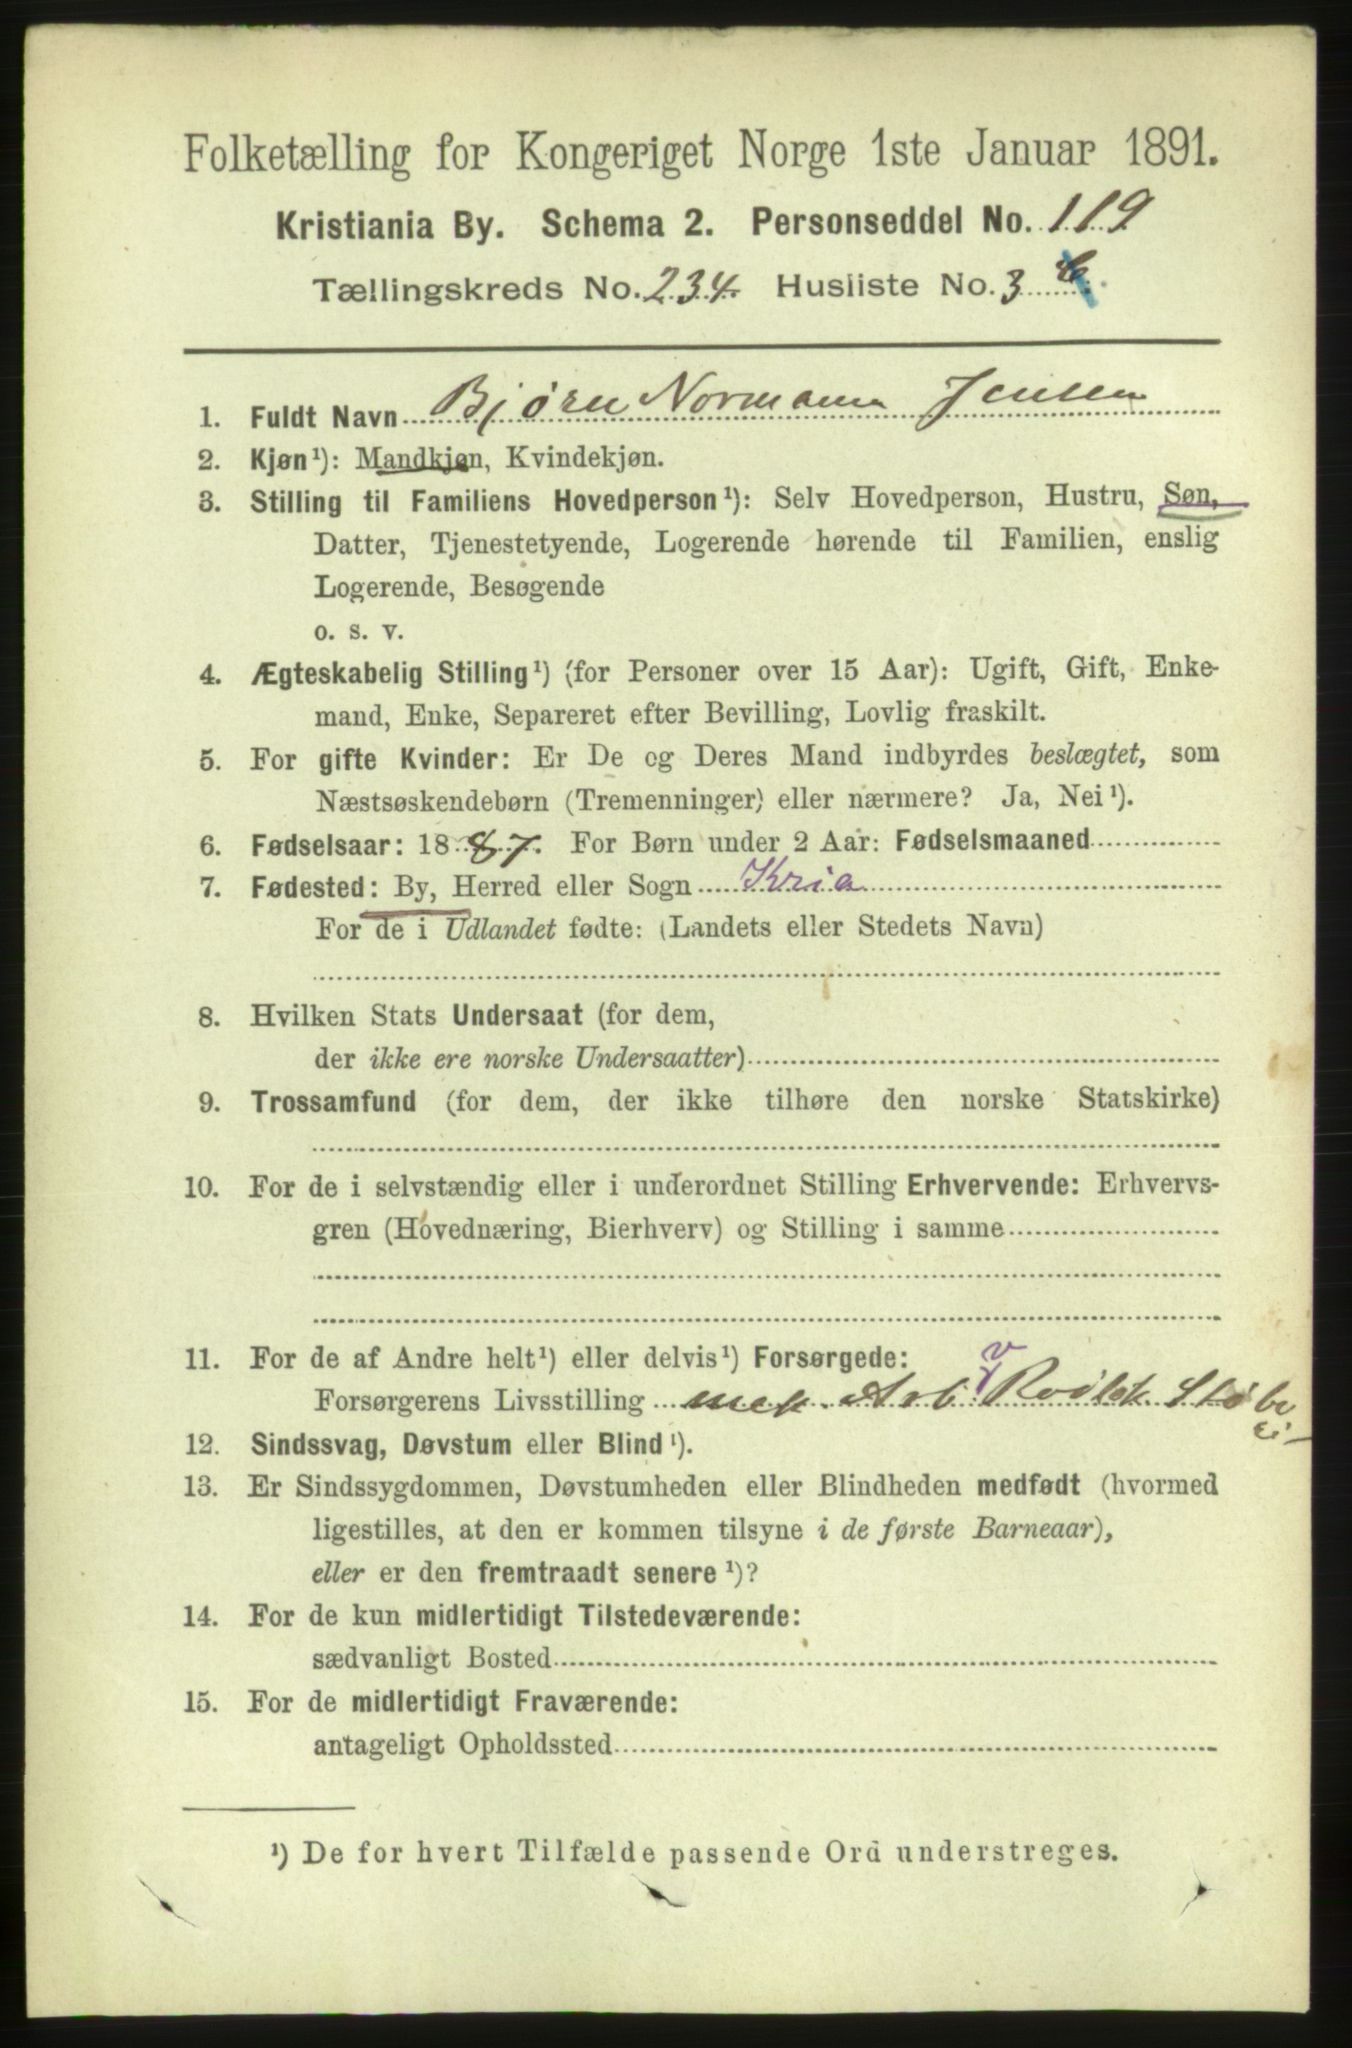 Folketælling for Kongeriget Norge 1ste Januar 1891.
Kristiania By. Schema 2. Personseddel No. 119
Tællingskreds No. 234. Husliste No. 3
1. Fuldt Navn Bjørn Normann Jensen
2. Kjøn¹): Mandkjøn, Kvindekjøn.
3. Stilling til Familiens Hovedperson¹): Selv Hovedperson, Hustru, Søn,
Datter, Tjenestetyende, Logerende hørende til Familien, enslig
Logerende, Besøgende
o. s. v.
4. Ægteskabelig Stilling¹) (for Personer over 15 Aar): Ugift, Gift, Enke-
mand, Enke, Separeret efter Bevilling, Lovlig fraskilt.
5. For gifte Kvinder: Er De og Deres Mand indbyrdes beslægtet, som
Næstsøskendebørn (Tremenninger) eller nærmere? Ja, Nei¹).
6. Fødselsaar: 1887. For Børn under 2 Aar: Fødselsmaaned
7. Fødested: By, Herred eller Sogn Kria
For de i Udlandet fødte: (Landets eller Stedets Navn)
8. Hvilken Stats Undersaat (for dem,
der ikke ere norske Undersaatter)
9. Trossamfund (for dem, der ikke tilhøre den norske Statskirke)
10. For de i selvstændig eller i underordnet Stilling Erhvervende: Erhvervs-
gren (Hovednæring, Bierhverv) og Stilling i samme
11. For de af Andre helt¹) eller delvis¹) Forsørgede:
Forsørgerens Livsstilling mek. Arb. v
12. Sindssvag, Døvstum eller Blind¹).
13. Er Sindssygdommen, Døvstumheden eller Blindheden medfødt (hvormed
ligestilles, at den er kommen tilsyne i de første Barneaar),
eller er den fremtraadt senere¹)?
14. For de kun midlertidigt Tilstedeværende:
sædvanligt Bosted
15. For de midlertidigt Fraværende:
antageligt Opholdssted
¹) De for hvert Tilfælde passende Ord understreges.